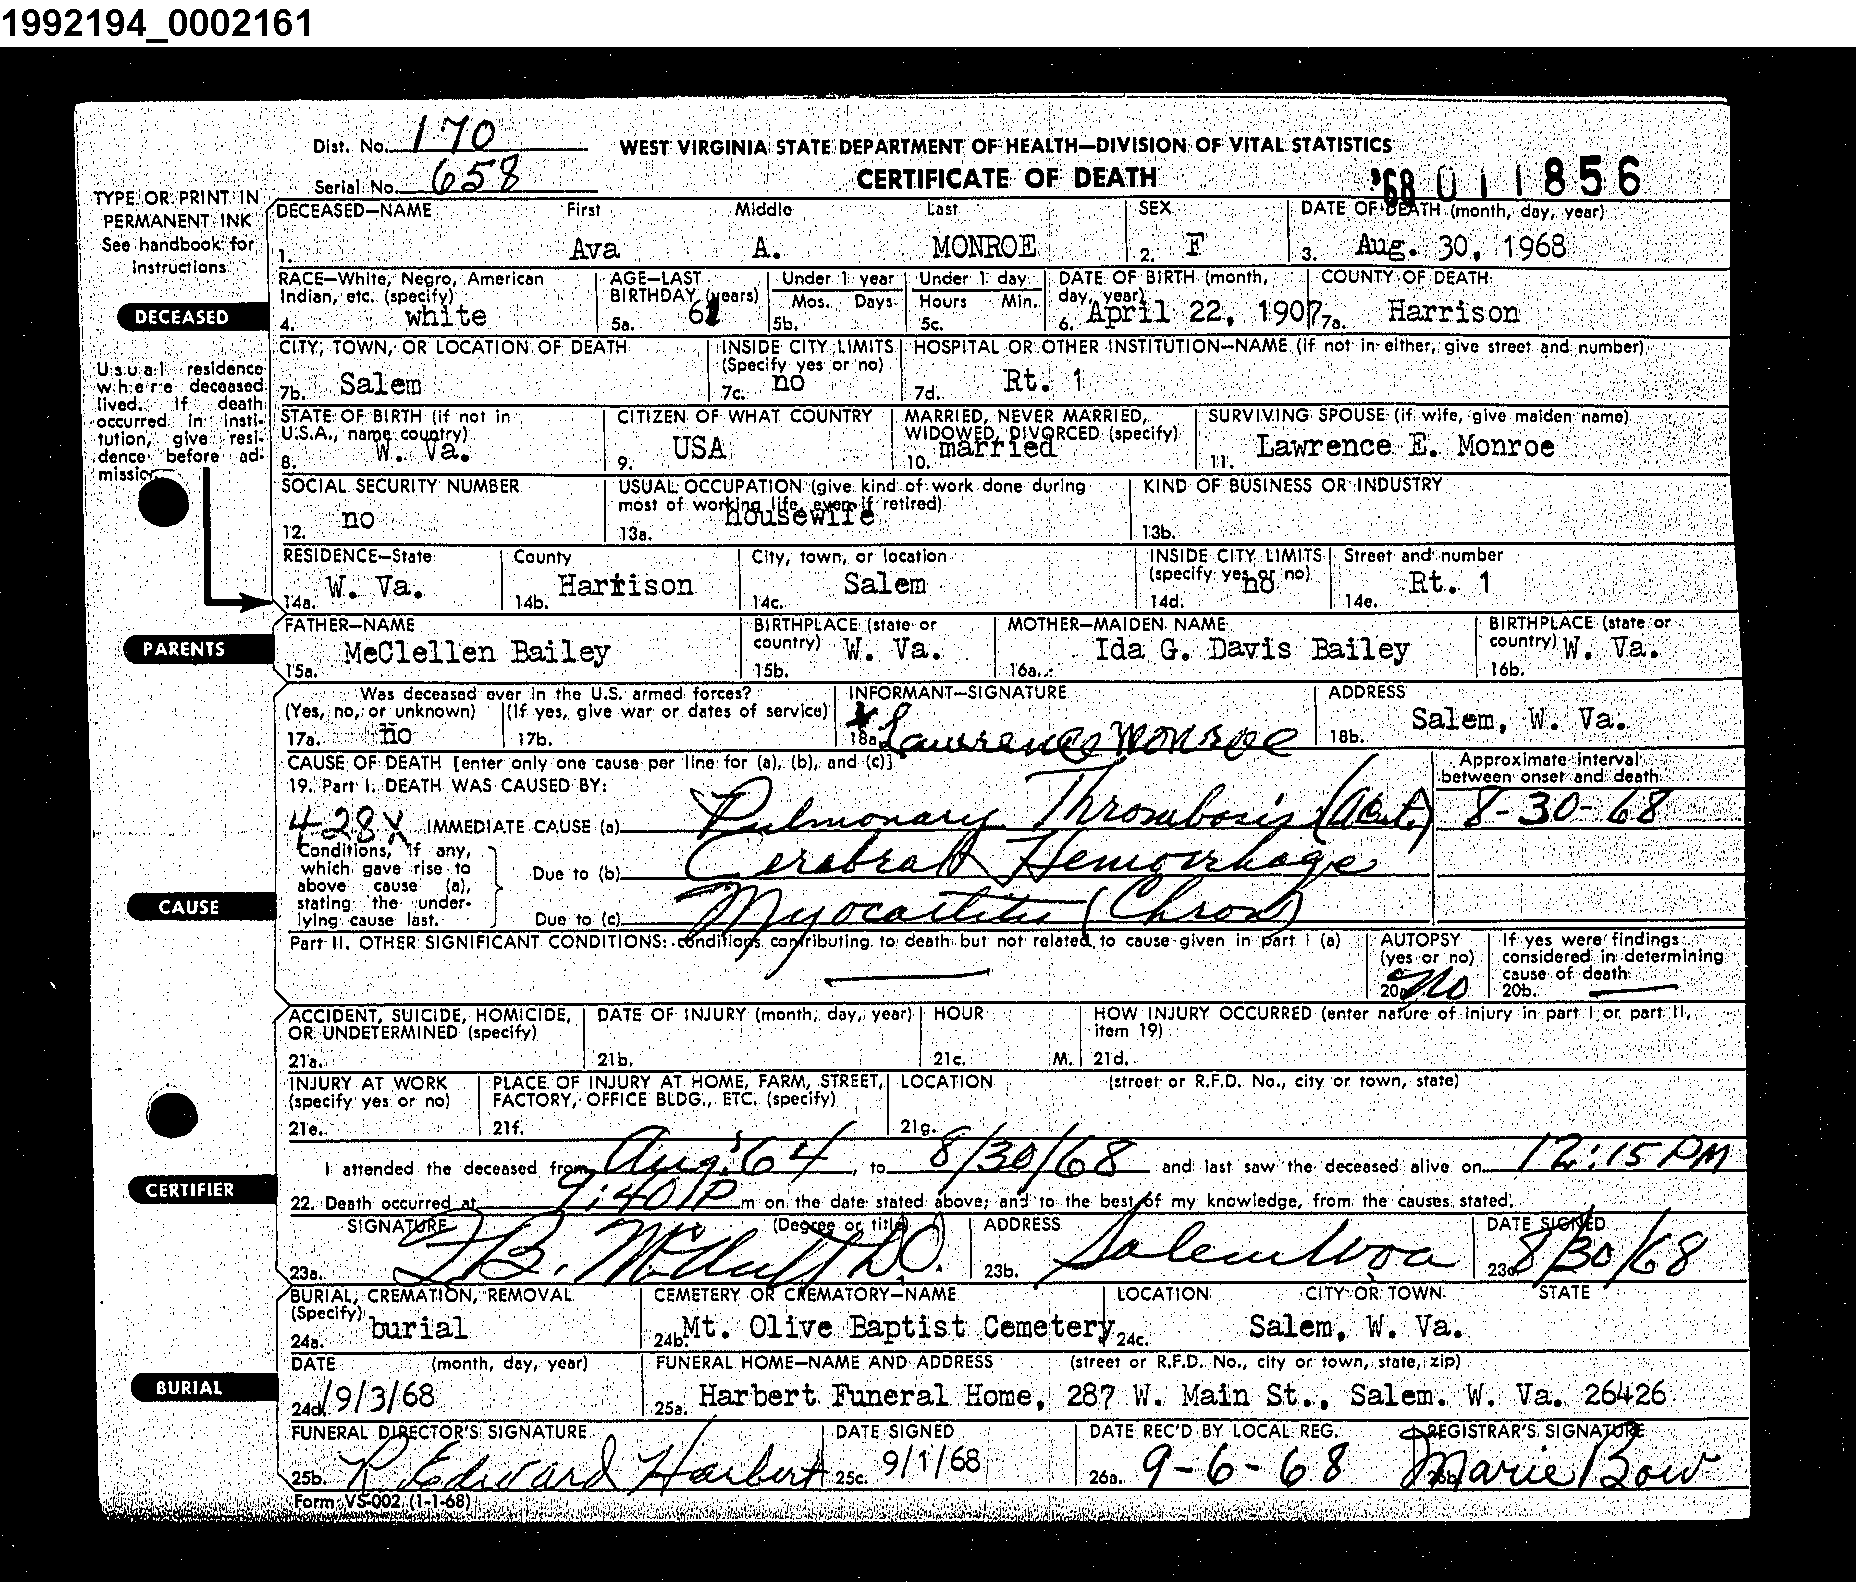 1992194_0002161
Dist. No. 170
WEST VIRGINIA STATE DEPARTMENT OF HEALTH—DIVISION OF VITAL STATISTICS
Serial No. 658
CERTIFICATE OF DEATH
'68 011856
TYPE OR PRINT IN
PERMANENT INK
See handbook for
instructions
DECEASED—NAME First Middle Last SEX DATE OF DEATH (month, day, year)
1. Ava A. MONROE 2. F 3. Aug. 30, 1968
RACE—White, Negro, American AGE—LAST Under 1 year Under 1 day DATE OF BIRTH (month, COUNTY OF DEATH
Indian, etc. (specify) BIRTHDAY (years) Mos. Days Hours Min. day, year)
DECEASED
4. white 5a. 61 5b. 5c. 6. April 22, 1907 7a. Harrison
CITY, TOWN, OR LOCATION OF DEATH INSIDE CITY LIMITS HOSPITAL OR OTHER INSTITUTION—NAME (if not in either, give street and number)
(Specify yes or no)
7b. Salem 7c. no 7d. Rt. 1
Usual residence
where deceased
lived. If death
occurred in insti-
tution, give resi-
dence before ad-
mission
STATE OF BIRTH (if not in CITIZEN OF WHAT COUNTRY MARRIED, NEVER MARRIED, SURVIVING SPOUSE (if wife, give maiden name)
U.S.A., name country) WIDOWED, DIVORCED (specify)
8. W. Va. 9. USA 10. married 11. Lawrence E. Monroe
SOCIAL SECURITY NUMBER USUAL OCCUPATION (give kind of work done during KIND OF BUSINESS OR INDUSTRY
most of working life, even if retired)
12. no 13a. housewife 13b.
RESIDENCE—State County City, town, or location INSIDE CITY LIMITS Street and number
(specify yes or no)
14a. W. Va. 14b. Harrison 14c. Salem 14d. no 14e. Rt. 1
PARENTS
FATHER—NAME BIRTHPLACE (state or MOTHER—MAIDEN NAME BIRTHPLACE (state or
country) country)
15a. McClellen Bailey 15b. W. Va. 16a. Ida G. Davis Bailey 16b. W. Va.
Was deceased ever in the U.S. armed forces? INFORMANT—SIGNATURE ADDRESS
(Yes, no, or unknown) (If yes, give war or dates of service)
17a. no 17b. 18a. Lawrence Monroe 18b. Salem, W. Va.
CAUSE OF DEATH [enter only one cause per line for (a), (b), and (c)] Approximate interval
between onset and death
19. Part I. DEATH WAS CAUSED BY:
428X IMMEDIATE CAUSE (a) Pulmonary Thrombosis (Acut.) 8-30-68
Conditions, if any,
which gave rise to
above cause (a),
stating the under-
lying cause last.
Due to (b) Cerebral Hemorrhage
CAUSE
Due to (c) Myocarditis (Chron)
Part II. OTHER SIGNIFICANT CONDITIONS: conditions contributing to death but not related to cause given in part I (a) AUTOPSY If yes were findings
(yes or no) considered in determining
cause of death
20a. No 20b.
ACCIDENT, SUICIDE, HOMICIDE, DATE OF INJURY (month, day, year) HOUR HOW INJURY OCCURRED (enter nature of injury in part I or part II,
OR UNDETERMINED (specify) item 19)
21a. 21b. 21c. M. 21d.
INJURY AT WORK PLACE OF INJURY AT HOME, FARM, STREET, LOCATION (street or R.F.D. No., city or town, state)
(specify yes or no) FACTORY, OFFICE BLDG., ETC. (specify)
21e. 21f. 21g.
CERTIFIER
I attended the deceased from Aug. '64, to 8/30/68 and last saw the deceased alive on 12:15 PM
22. Death occurred at 9:40 P m on the date stated above; and to the best of my knowledge, from the causes stated.
SIGNATURE (Degree or title) ADDRESS DATE SIGNED
23a. 23b. Salem W Va 23c. 8/30/68
BURIAL, CREMATION, REMOVAL CEMETERY OR CREMATORY—NAME LOCATION CITY OR TOWN STATE
(Specify)
24a. burial 24b. Mt. Olive Baptist Cemetery 24c. Salem, W. Va.
BURIAL
DATE (month, day, year) FUNERAL HOME—NAME AND ADDRESS (street or R.F.D. No., city or town, state, zip)
24d. 9/3/68 25a. Harbert Funeral Home, 287 W. Main St., Salem. W. Va. 26426
FUNERAL DIRECTOR'S SIGNATURE DATE SIGNED DATE REC'D BY LOCAL REG. REGISTRAR'S SIGNATURE
25b. R. Edward Harbert 25c. 9/1/68 26a. 9-6-68 26b. Marie Bow
Form VS-002 (1-1-68)